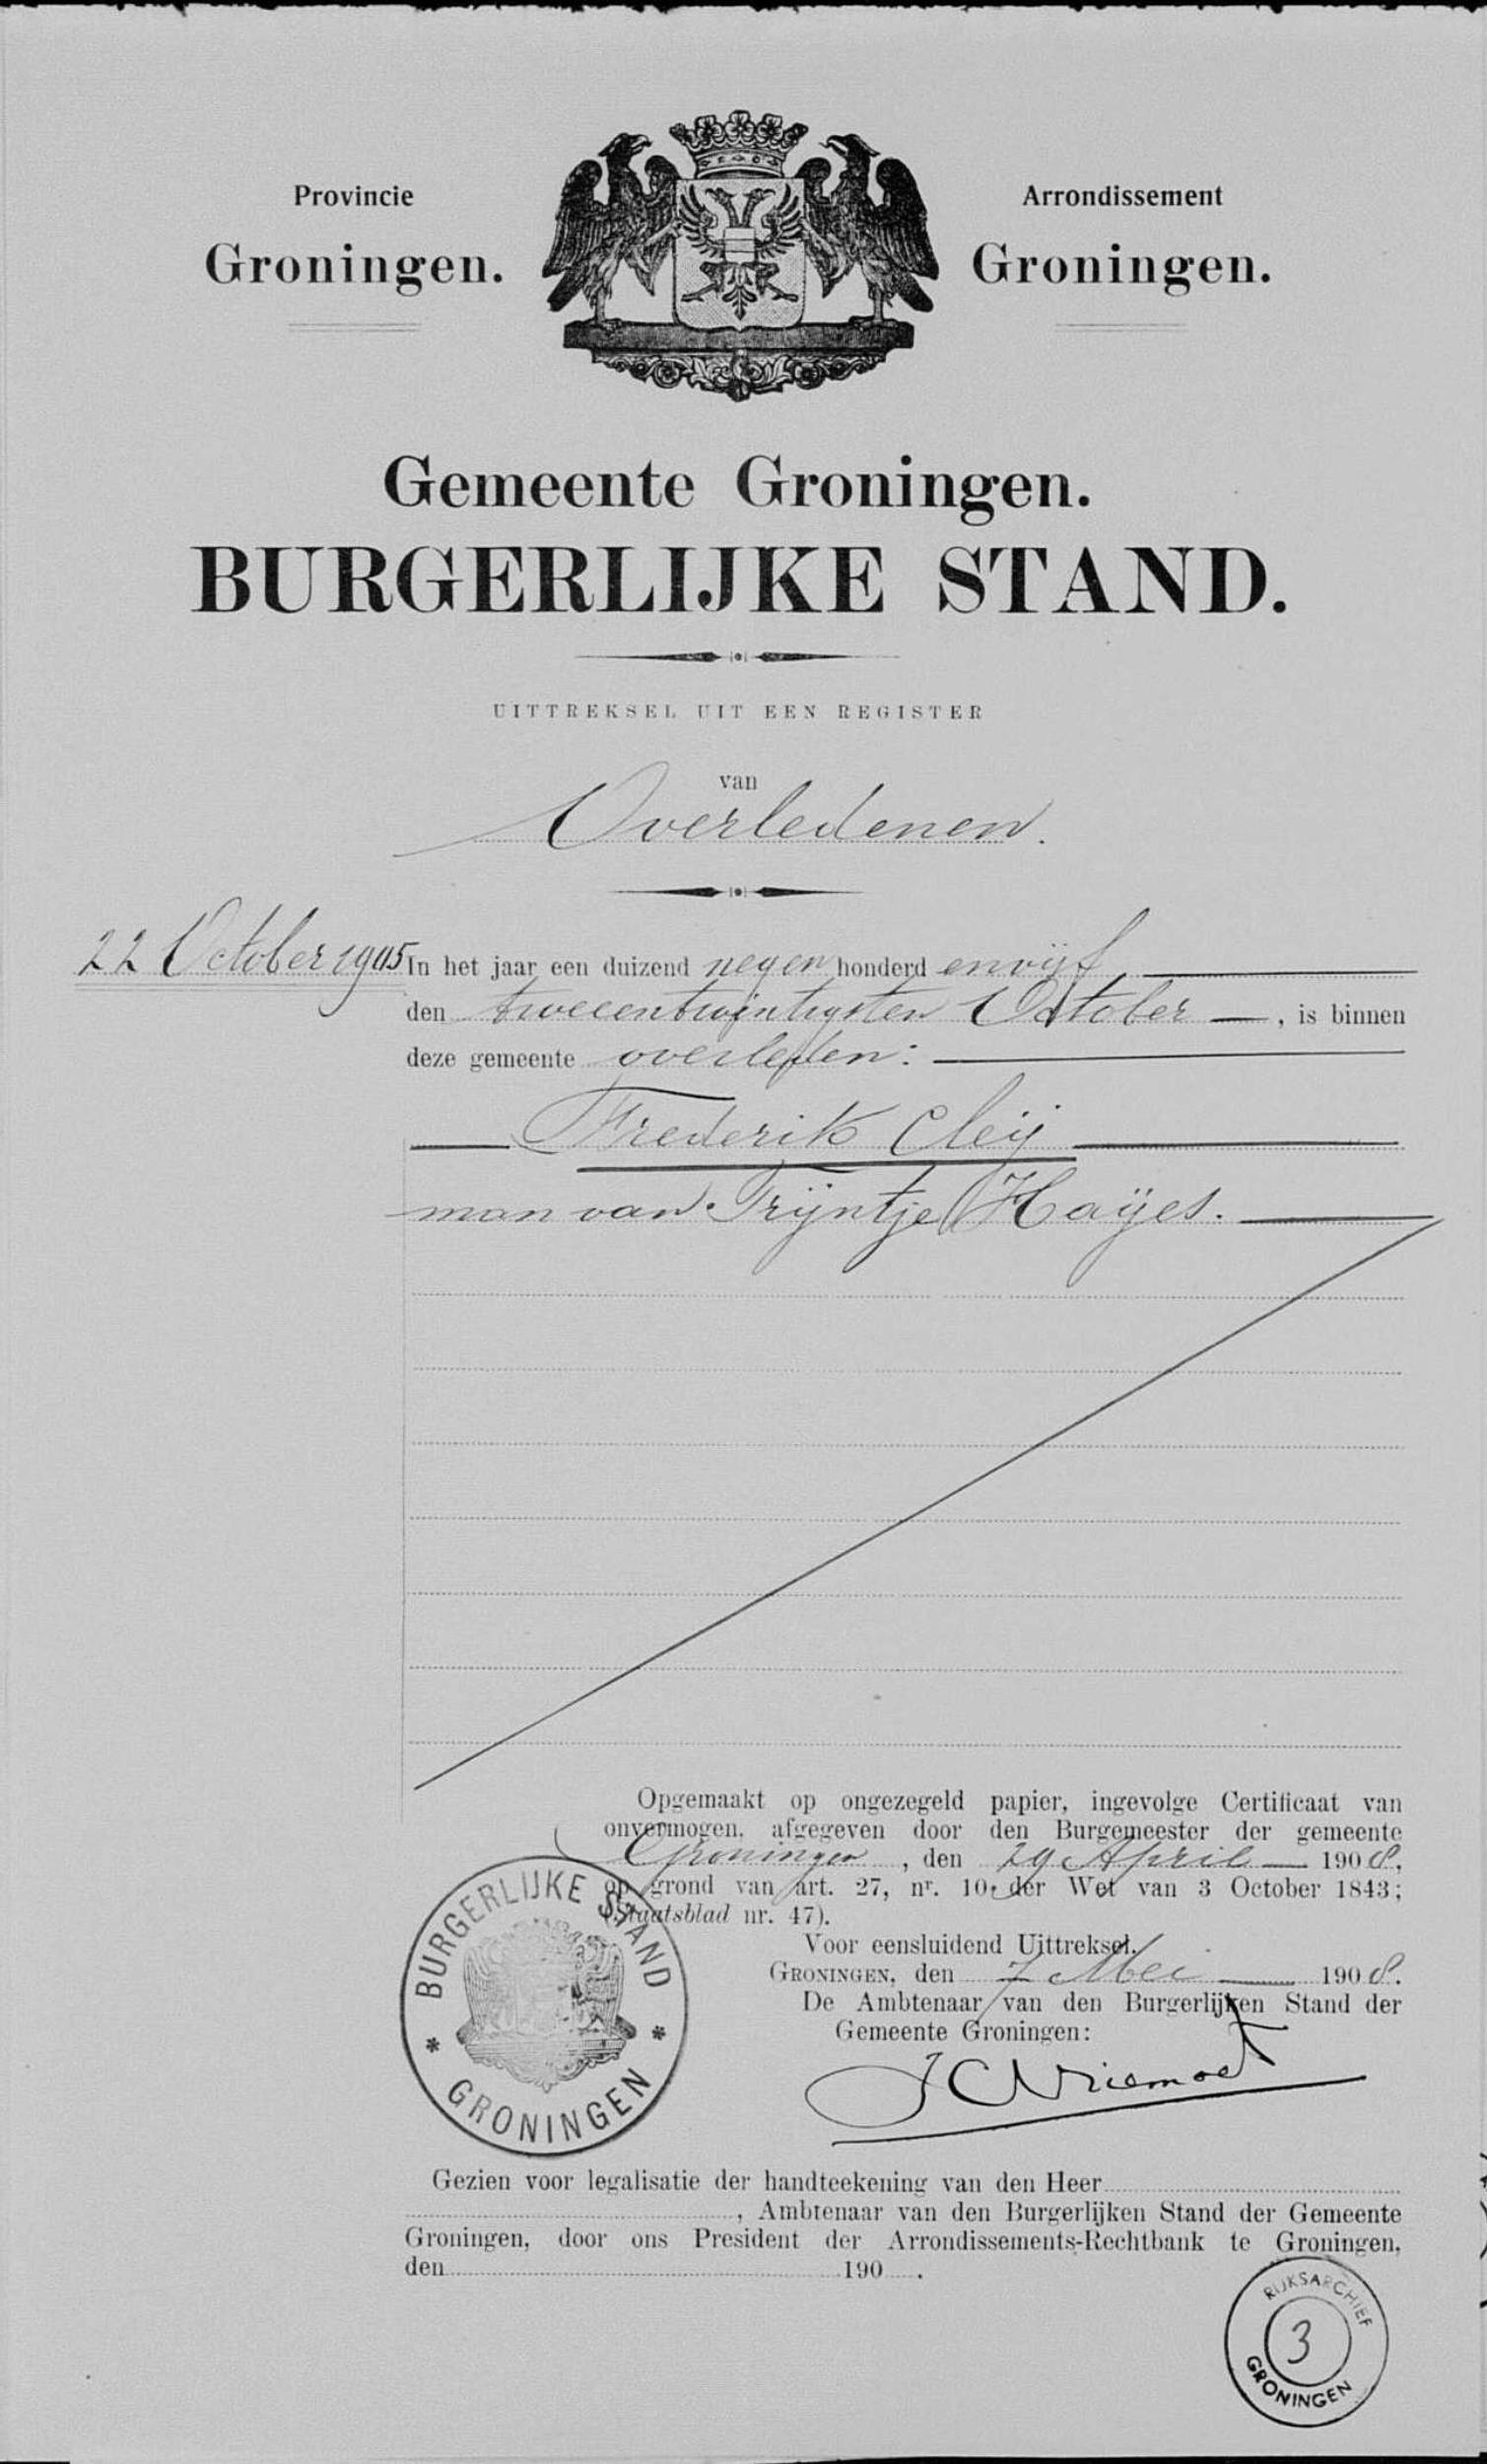 Provincie
Groningen.
Arrondissement
Groningen.
Gemeente Groningen.
BURGERLIJKE STAND.
UITTREKSEL UIT EEN REGISTER
van
Overledenen.
22 October 1905
In het jaar een duizend negen honderd en vijf
den tweeentwintigsten October —, is binnen
deze gemeente overleden:
Frederik Cleij
man van Trijntje Haijes.
Opgemaakt op ongezegeld papier, ingevolge Certificaat van
onvermogen, afgegeven door den Burgemeester der gemeente
Groningen, den 29 April — 1908,
op grond van art. 27, nr. 10, der Wet van 3 October 1843;
(Staatsblad nr. 47).
Voor eensluidend Uittreksel.
GRONINGEN, den 7 Mei — 1908.
De Ambtenaar van den Burgerlijken Stand der
Gemeente Groningen:
JCVriemoet
BURGERLIJKE STAND
* GRONINGEN *
Gezien voor legalisatie der handteekening van den Heer
, Ambtenaar van den Burgerlijken Stand der Gemeente
Groningen, door ons President der Arrondissements-Rechtbank te Groningen,
den 190 .
RIJKSARCHIEF
3
GRONINGEN